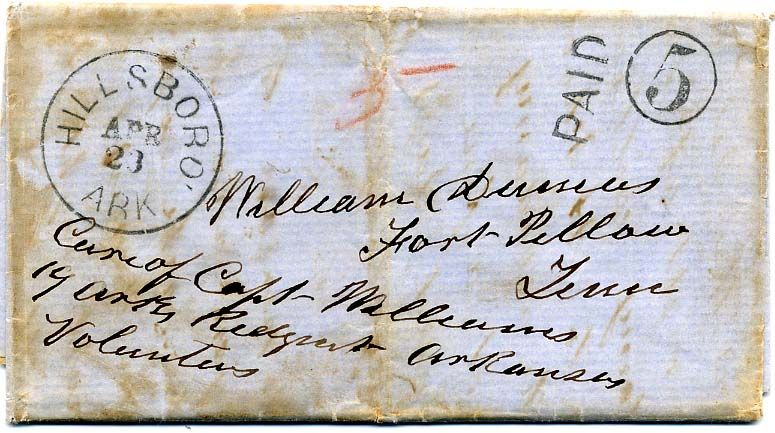 HILLSBORO,
APR
23
ARK
3
PAID
5
William Dumas
Fort Pillow
Tenn
Care of Capt Williams
Arks Redgment Arkansas
Volunteers